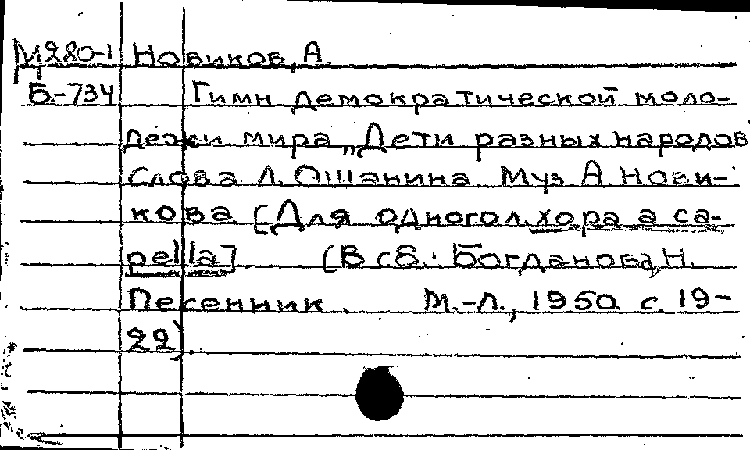 М280-1 Новиков, А.
Б-734 Гимн демократической моло-
дежи мира „Дети разных народов
Слова Л. Ошанина Муз А Нови-
кова [Для одногол. хора a ca-
pella] (В сб.: Богданова, Н.
Песенник. М.-Л., 1950 с. 19-
22).